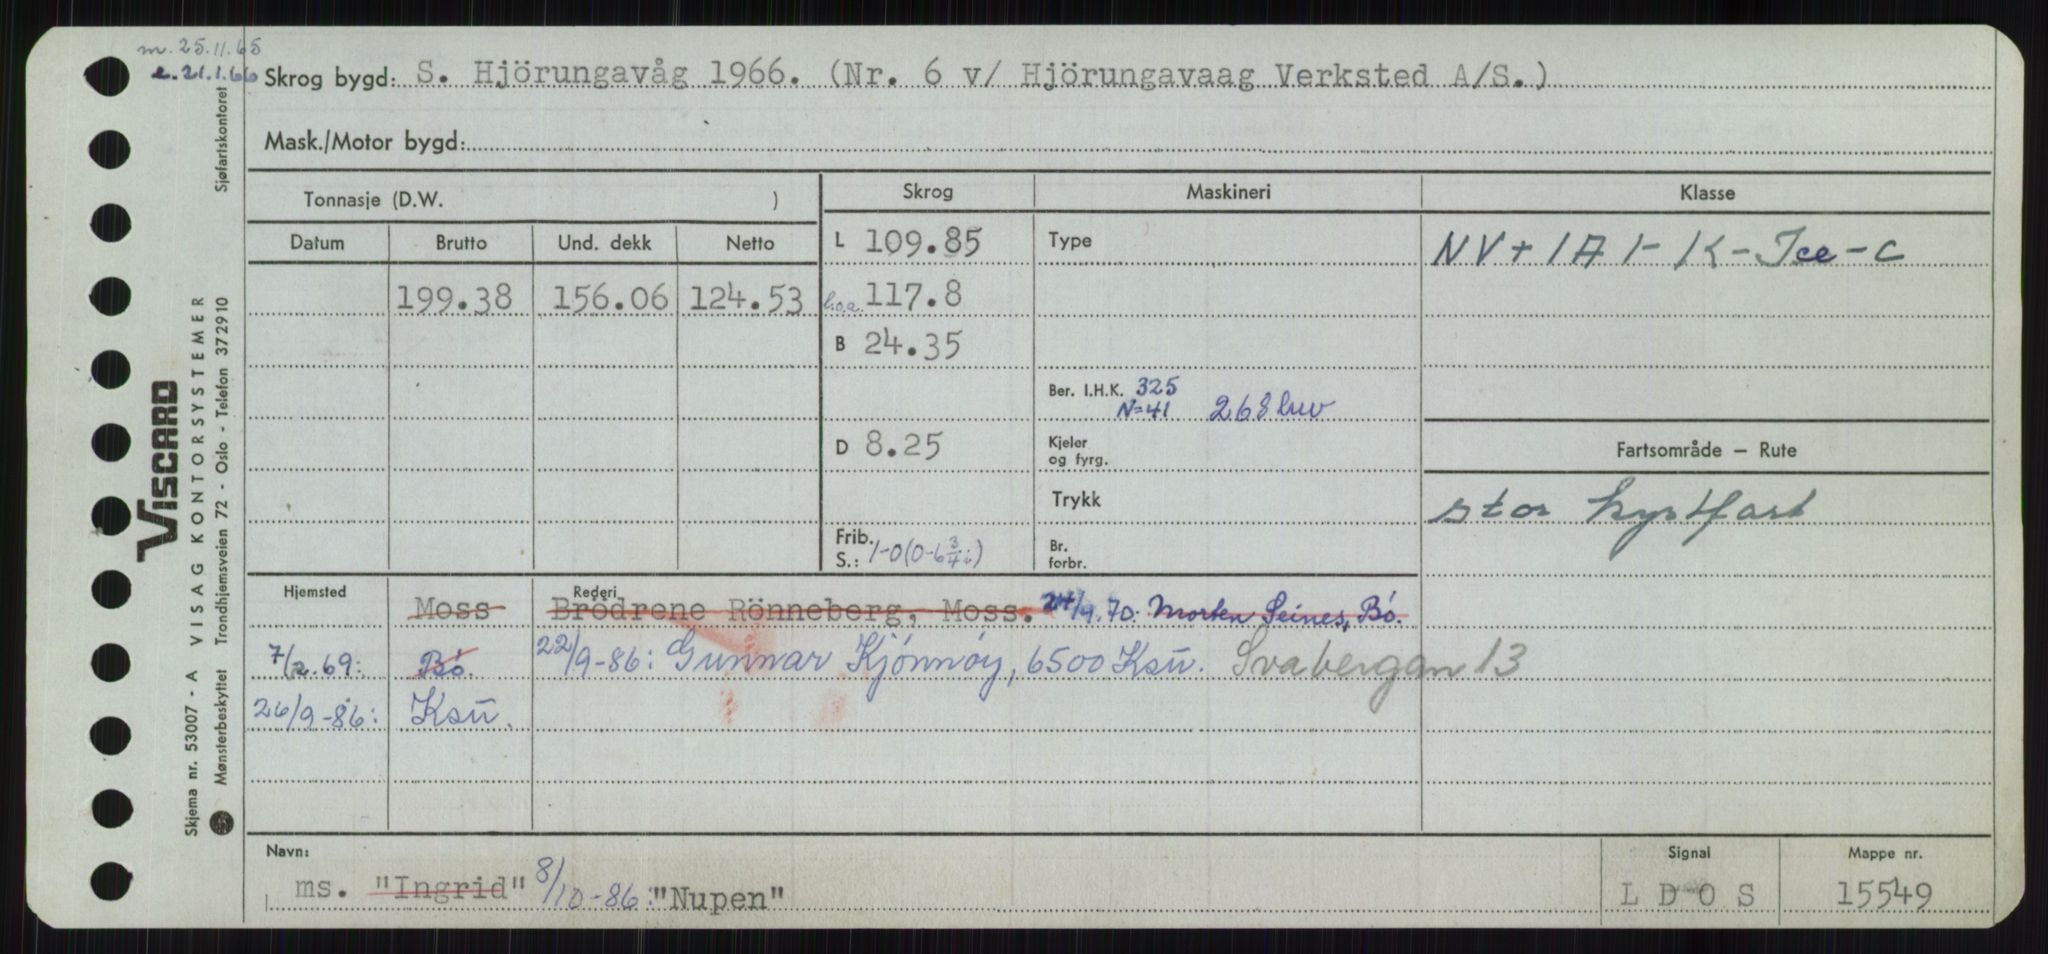 m. 25.11.65
e. 21.1.66
Skrog bygd: S. Hjörungavåg 1966. (Nr. 6 v/ Hjörungavaag Verksted A/S.)
Mask./Motor bygd:
Tonnasje (D.W. )
Skrog Maskineri Klasse
Datum Brutto Und. dekk Netto
L 109.85 Type NV+1A1-K-Ice-C
199.38 156.06 124.53 l.o.a. 117.8
B 24.35
Ber. I.H.K. 325
N=41 268 luv
D 8.25 Kjeler
og fyrg.
Fartsområde – Rute
Trykk stor kystfart
Frib.
S.: 1-0(0-6 3/4 i) Br.
forbr.
Hjemsted Rederi
Moss Brödrene Rönneberg, Moss. 24/9.70: Morten Seines, Bö.
7/2.69: Bö. 22/9-86: Gunnar Kjönnöy, 6500 Ksu. Svabergan 13
26/9-86: Ksu.
Navn: Signal Mappe nr.
ms. "Ingrid" 8/10-86: "Nupen" L D O S 15549
VISCARD
Skjema nr. 53007 - A VISAG KONTORSYSTEMER
Mønsterbeskyttet Trondhjemsveien 72 - Oslo - Telefon 372910 Sjøfartskontoret